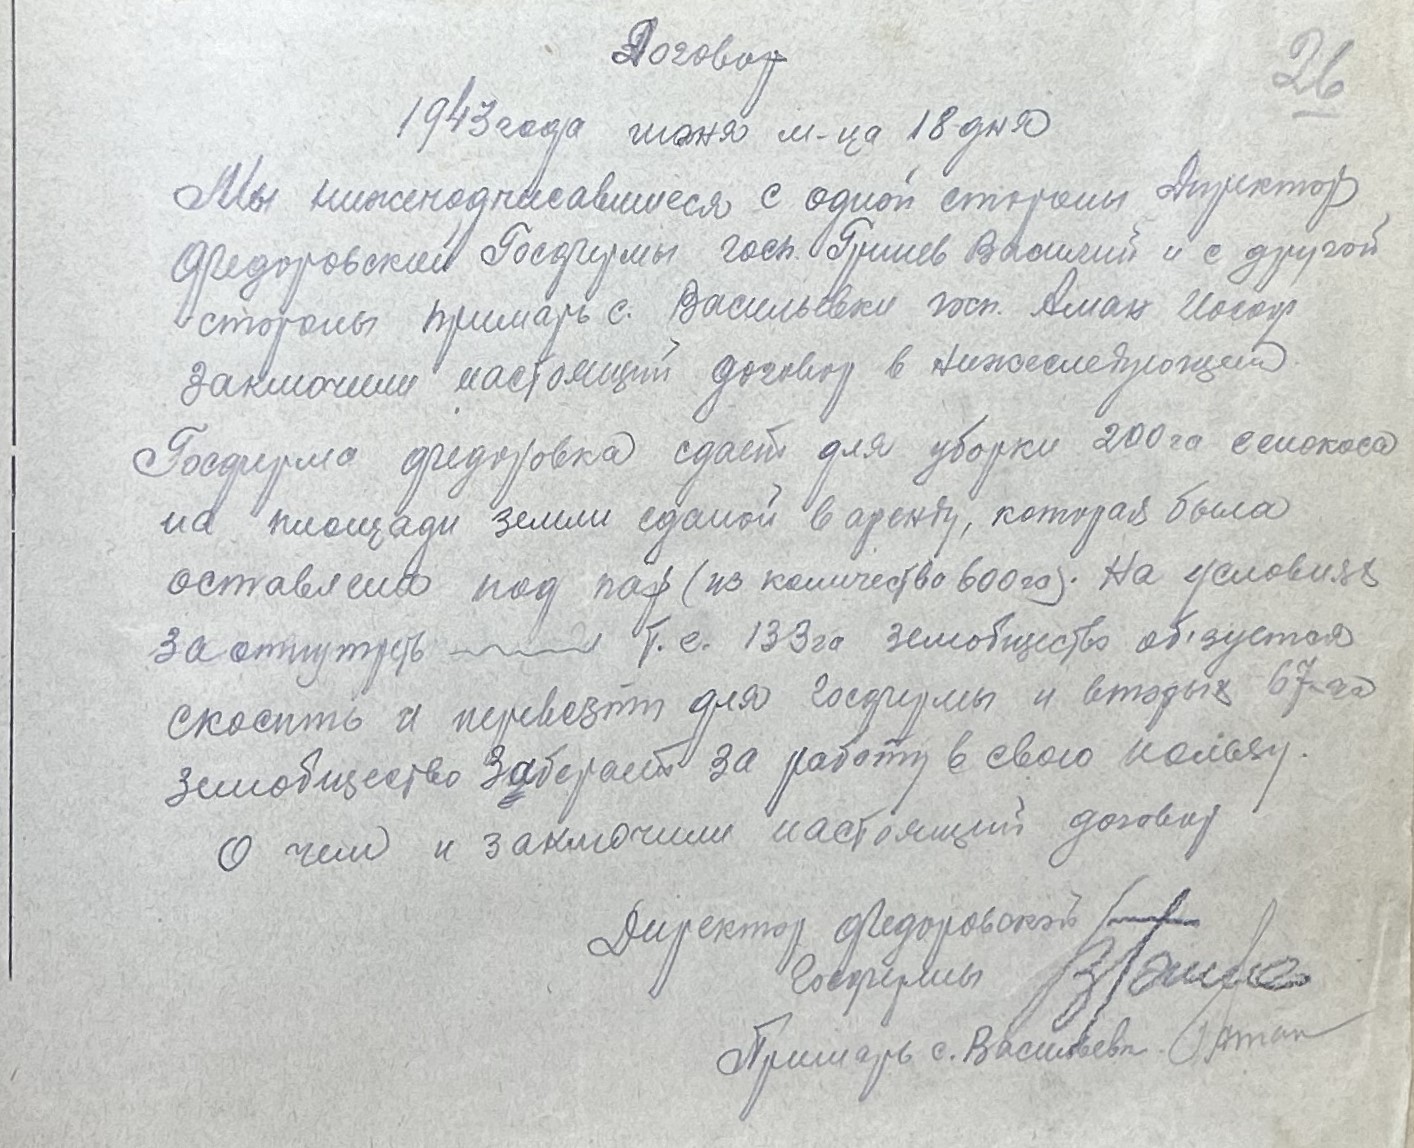 Договор
26
1943 года июня м-ца 18 дня
Мы нижеподписавшиеся с одной стороны Директор
Федоровской Госфермы госп. Гришев Василий и с другой
стороны примарь с. Васильевки госп. Аман Иосиф
заключили настоящий договор в нижеследующем
Госферма Федоровка сдает для уборки 200 га сенокоса
на площади земли сданой в аренду, которая была
оставлена под пар (из количество 600 га). На условиях
за Т. е. 133 га земобщество обізуется
скосить и перевезти для Госфермы и вторых 67 га
земобщество заберает за работу в свою пользу.
О чем и заключили настоящий договор
Директор Федоровской
Госфермы
Примарь с. Васильевк. Аман